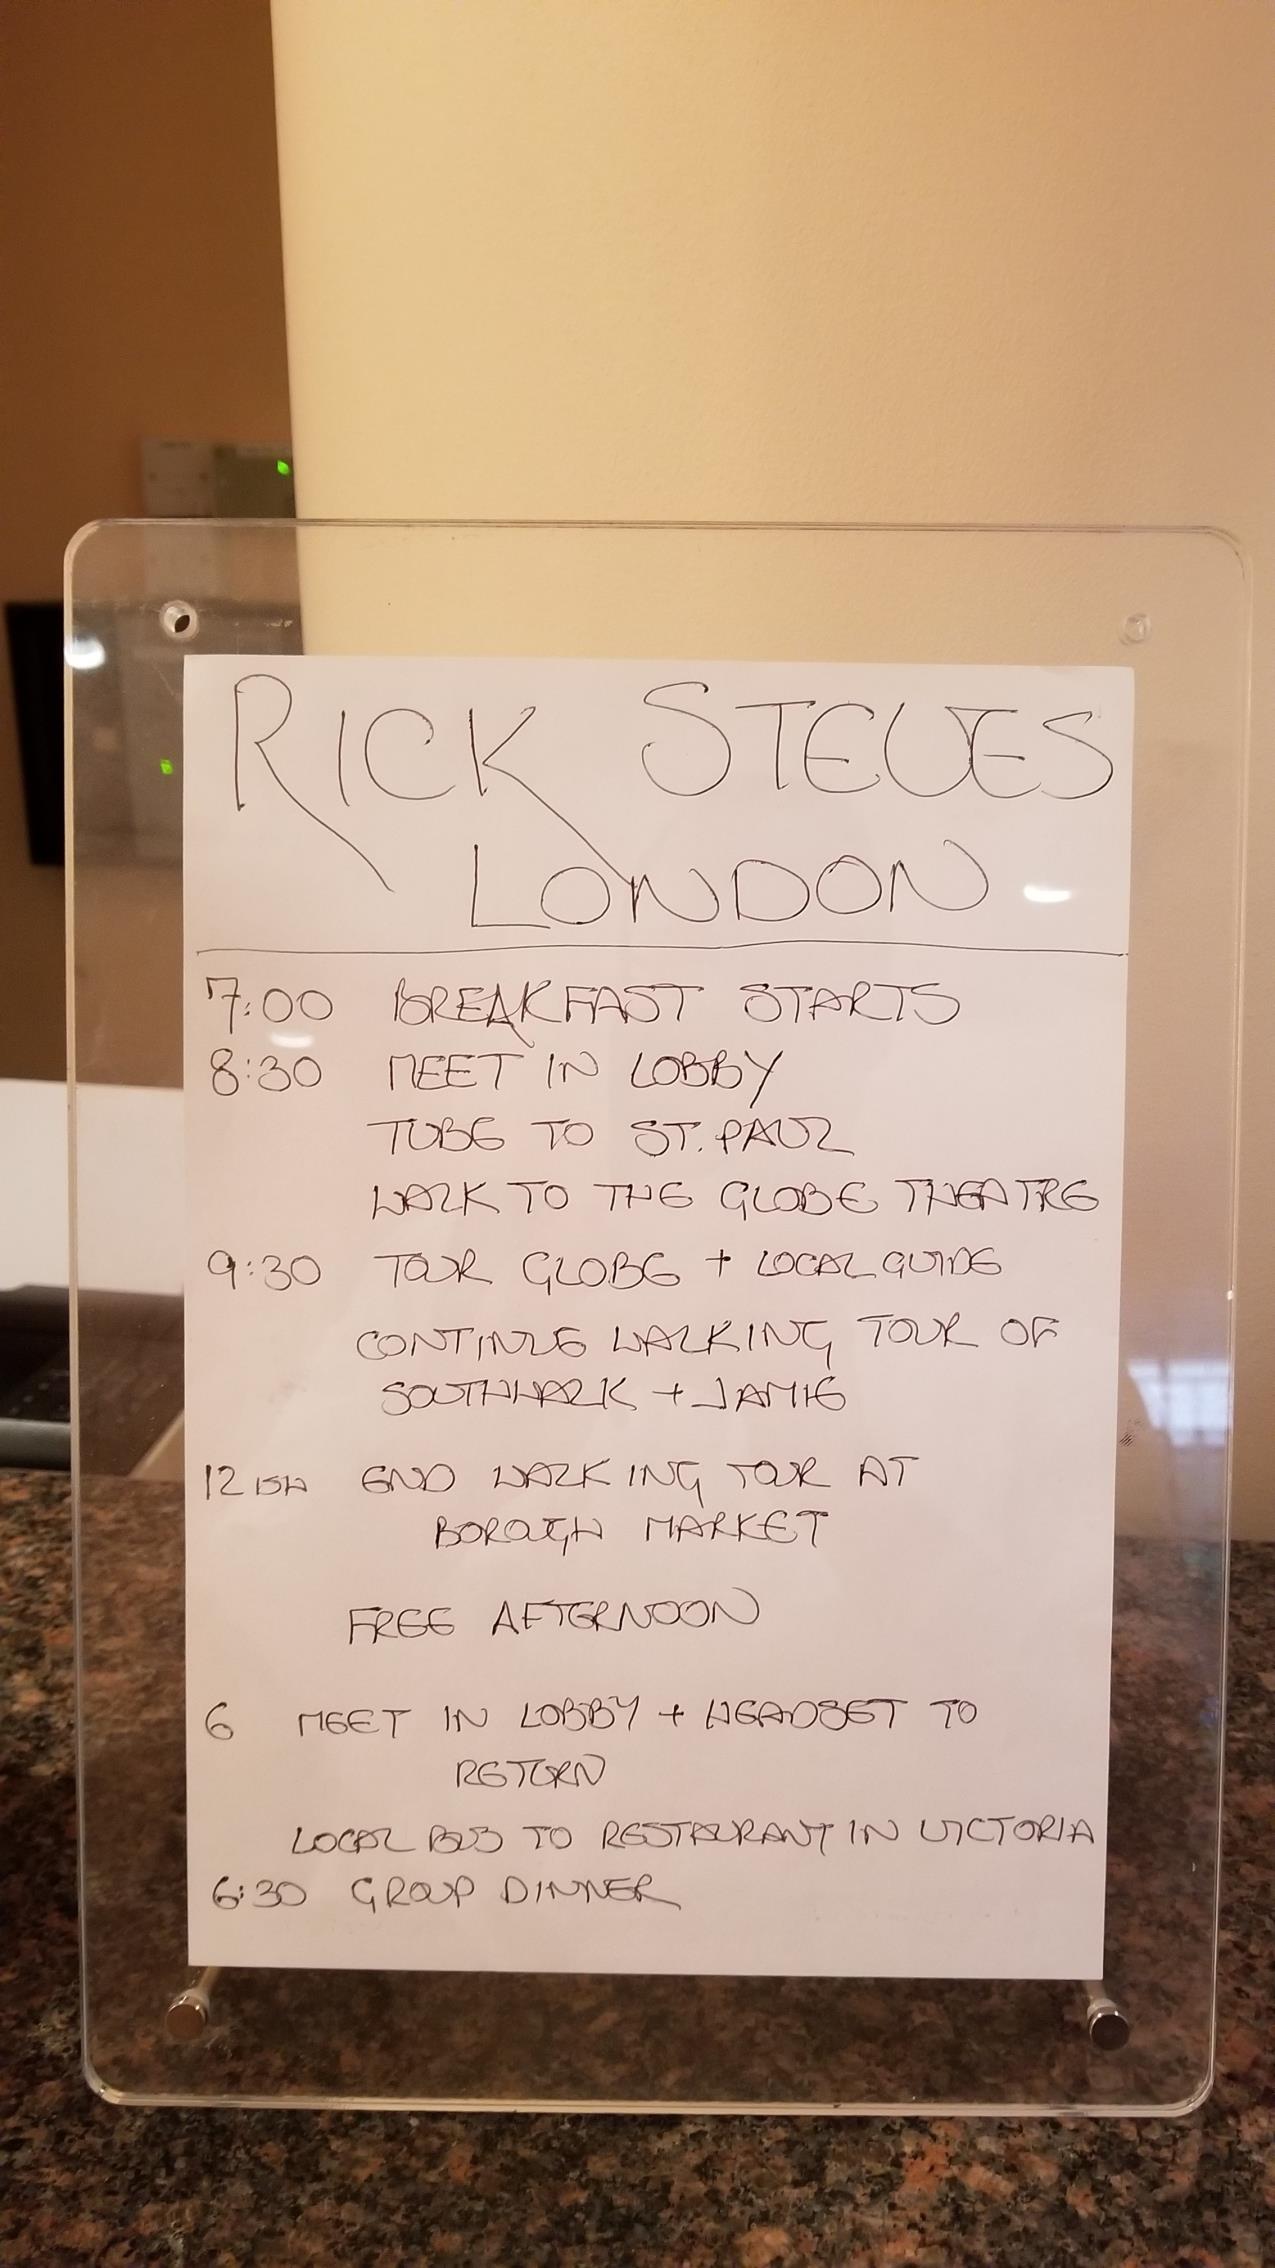 RICK STEVES
LONDON
7:00 BREAKFAST STARTS
8:30 MEET IN LOBBY
TUBE TO ST. PAUL
WALK TO THE GLOBE THEATRE
9:30 TOUR GLOBE + LOCAL GUIDE
CONTINUE WALKING TOUR OF
SOUTHWARK + JAMIE
12 ISH END WALKING TOUR AT
BOROUGH MARKET
FREE AFTERNOON
6 MEET IN LOBBY + HEADSET TO
RETURN
LOCAL BUS TO RESTAURANT IN VICTORIA
6:30 GROUP DINNER